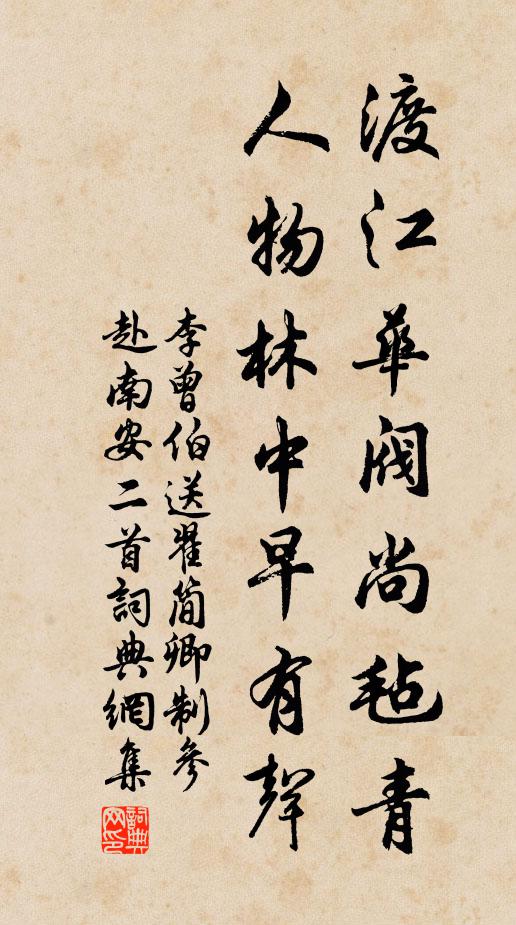 渡江華閥尚毡青
人物林中早有聲
李曾伯送翟簡卿制參
赴南安二首詞典網集
詞典
网印